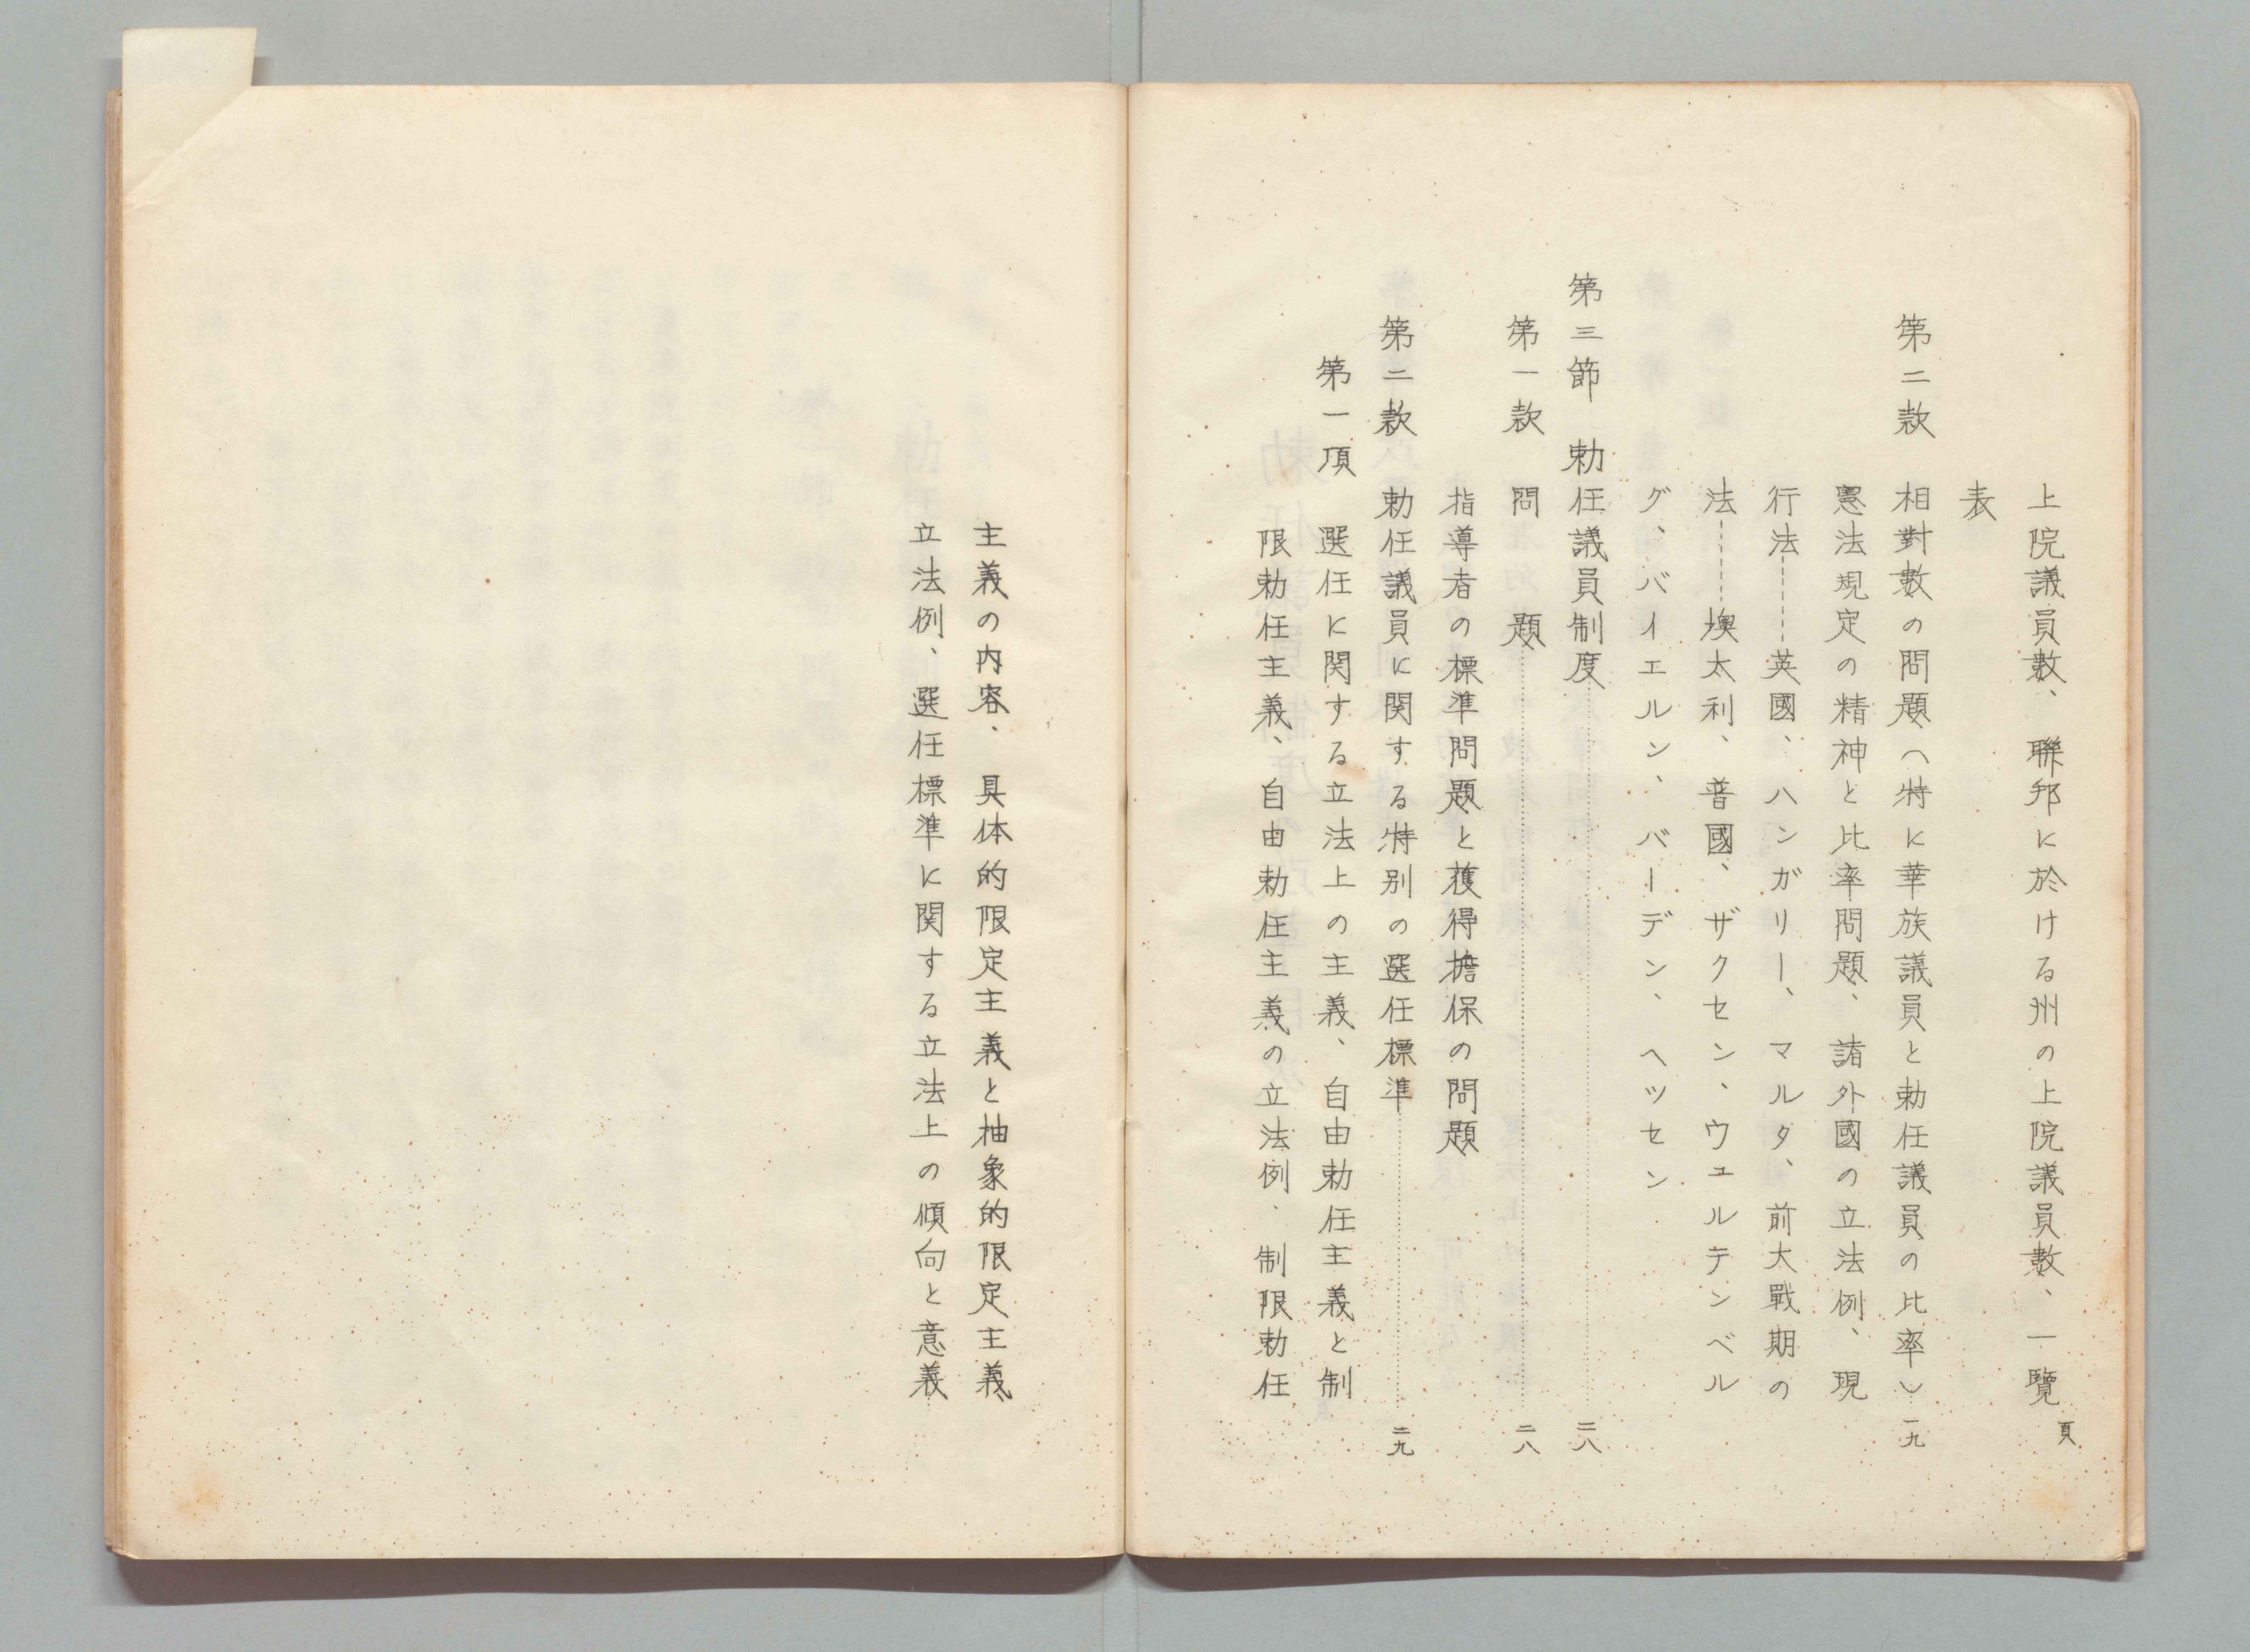 頁
上院議員數、聯邦に於ける州の上院議員數、一覽
表
第二款 相對數の問題(特に華族議員と勅任議員の比率) 一九
憲法規定の精神と比率問題、諸外國の立法例、現
行法-----英國、ハンガリー、マルタ、前大戰期の
法-----墺太利、普國、ザクセン、ウエルテンベル
グ、バイエルン、バーデン、ヘッセン
第三節 勅任議員制度……………………二八
第一款 問題……………………二八
指導者の標準問題と獲得擔保の問題
第二款 勅任議員に関する特別の選任標準……………………二九
第一項 選任に関する立法上の主義、自由勅任主義と制
限勅任主義、自由勅任主義の立法例、制限勅任
主義の内容、具体的限定主義と抽象的限定主義
立法例、選任標準に関する立法上の傾向と意義